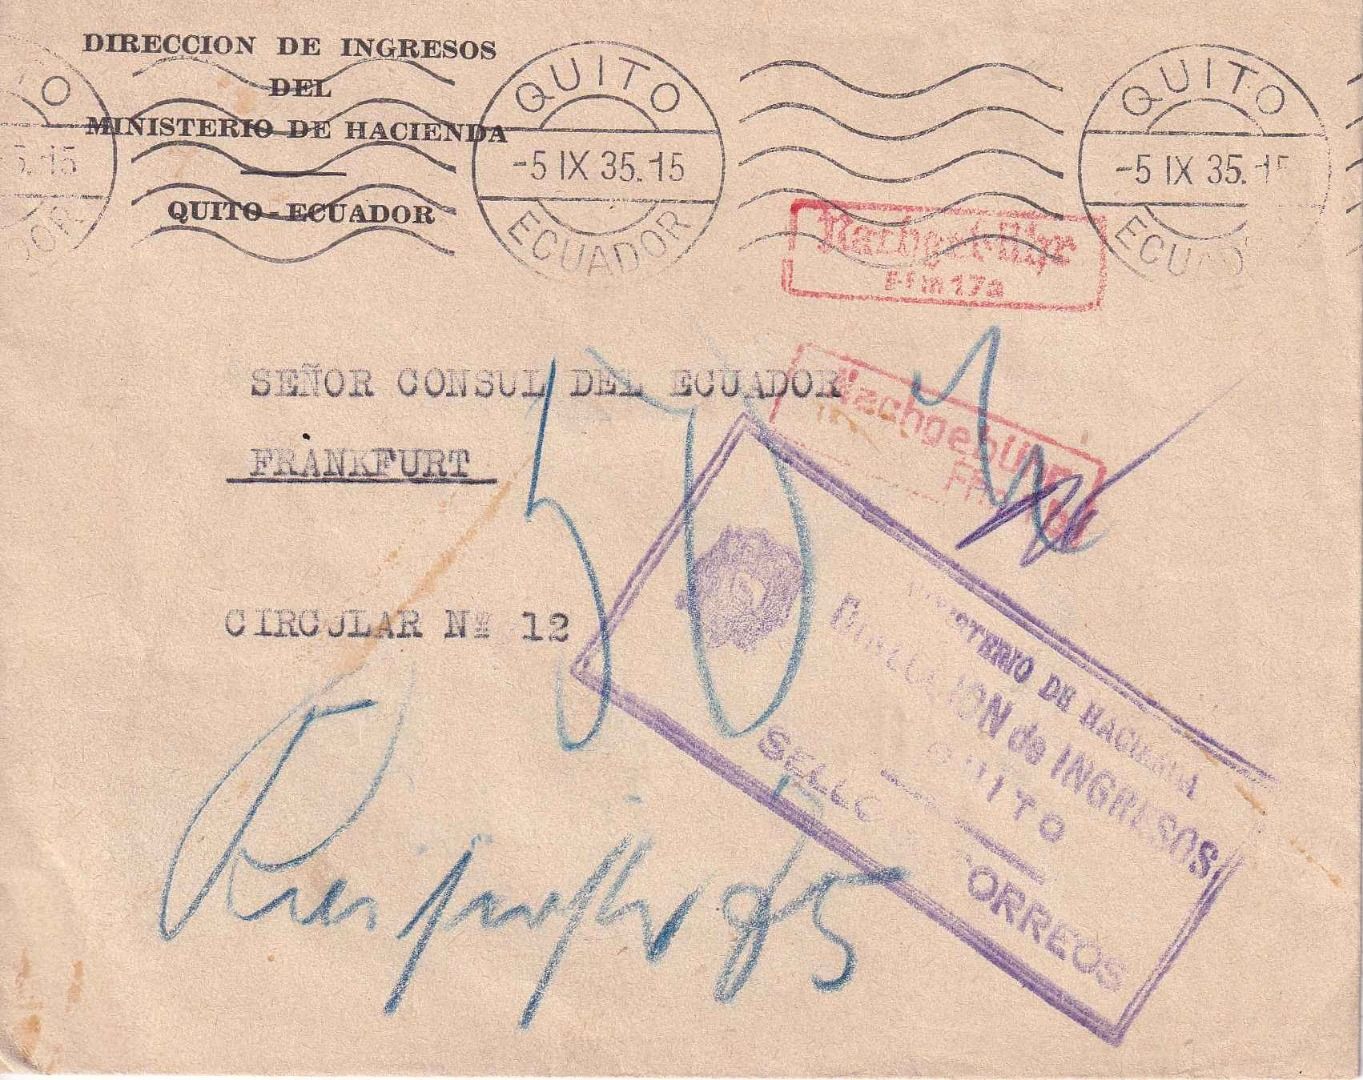 DIRECCION DE INGRESOS
DEL
MINISTERIO DE HACIENDA
QUITO - ECUADOR
QUITO
-5 IX 35.-15
ECUADOR
QUITO
-5 IX 35.-15
ECUADOR
Nachgebühr
Ffm 17a
SEÑOR CONSUL DEL ECUADOR
FRANKFURT
Nachgebühr
50
CIRCULAR Nº 12
MINISTERIO DE HACIENDA
DIRECCION de INGRESOS.
QUITO
SELLO DE CORREOS
85